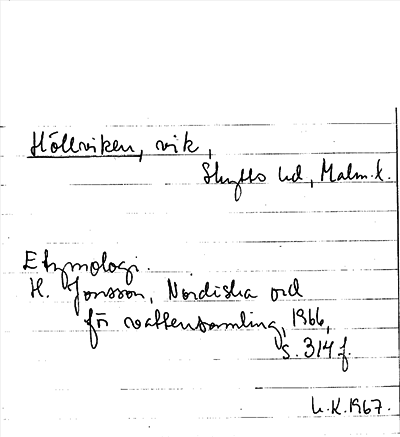 Höllviken, vik,
Skytts hd, Malm.l.
Etymologi.
H. Jonsson, Nordiska ord
för vattensamling, 1966,
s. 314 f.
L.K. 1967.